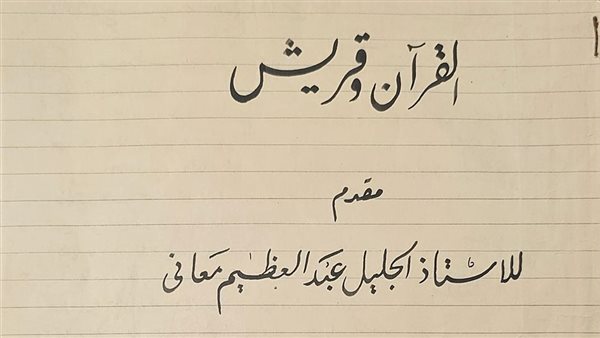 القرآن وقريش
مقدم
للاستاذ الجليل عبد العظيم معانى